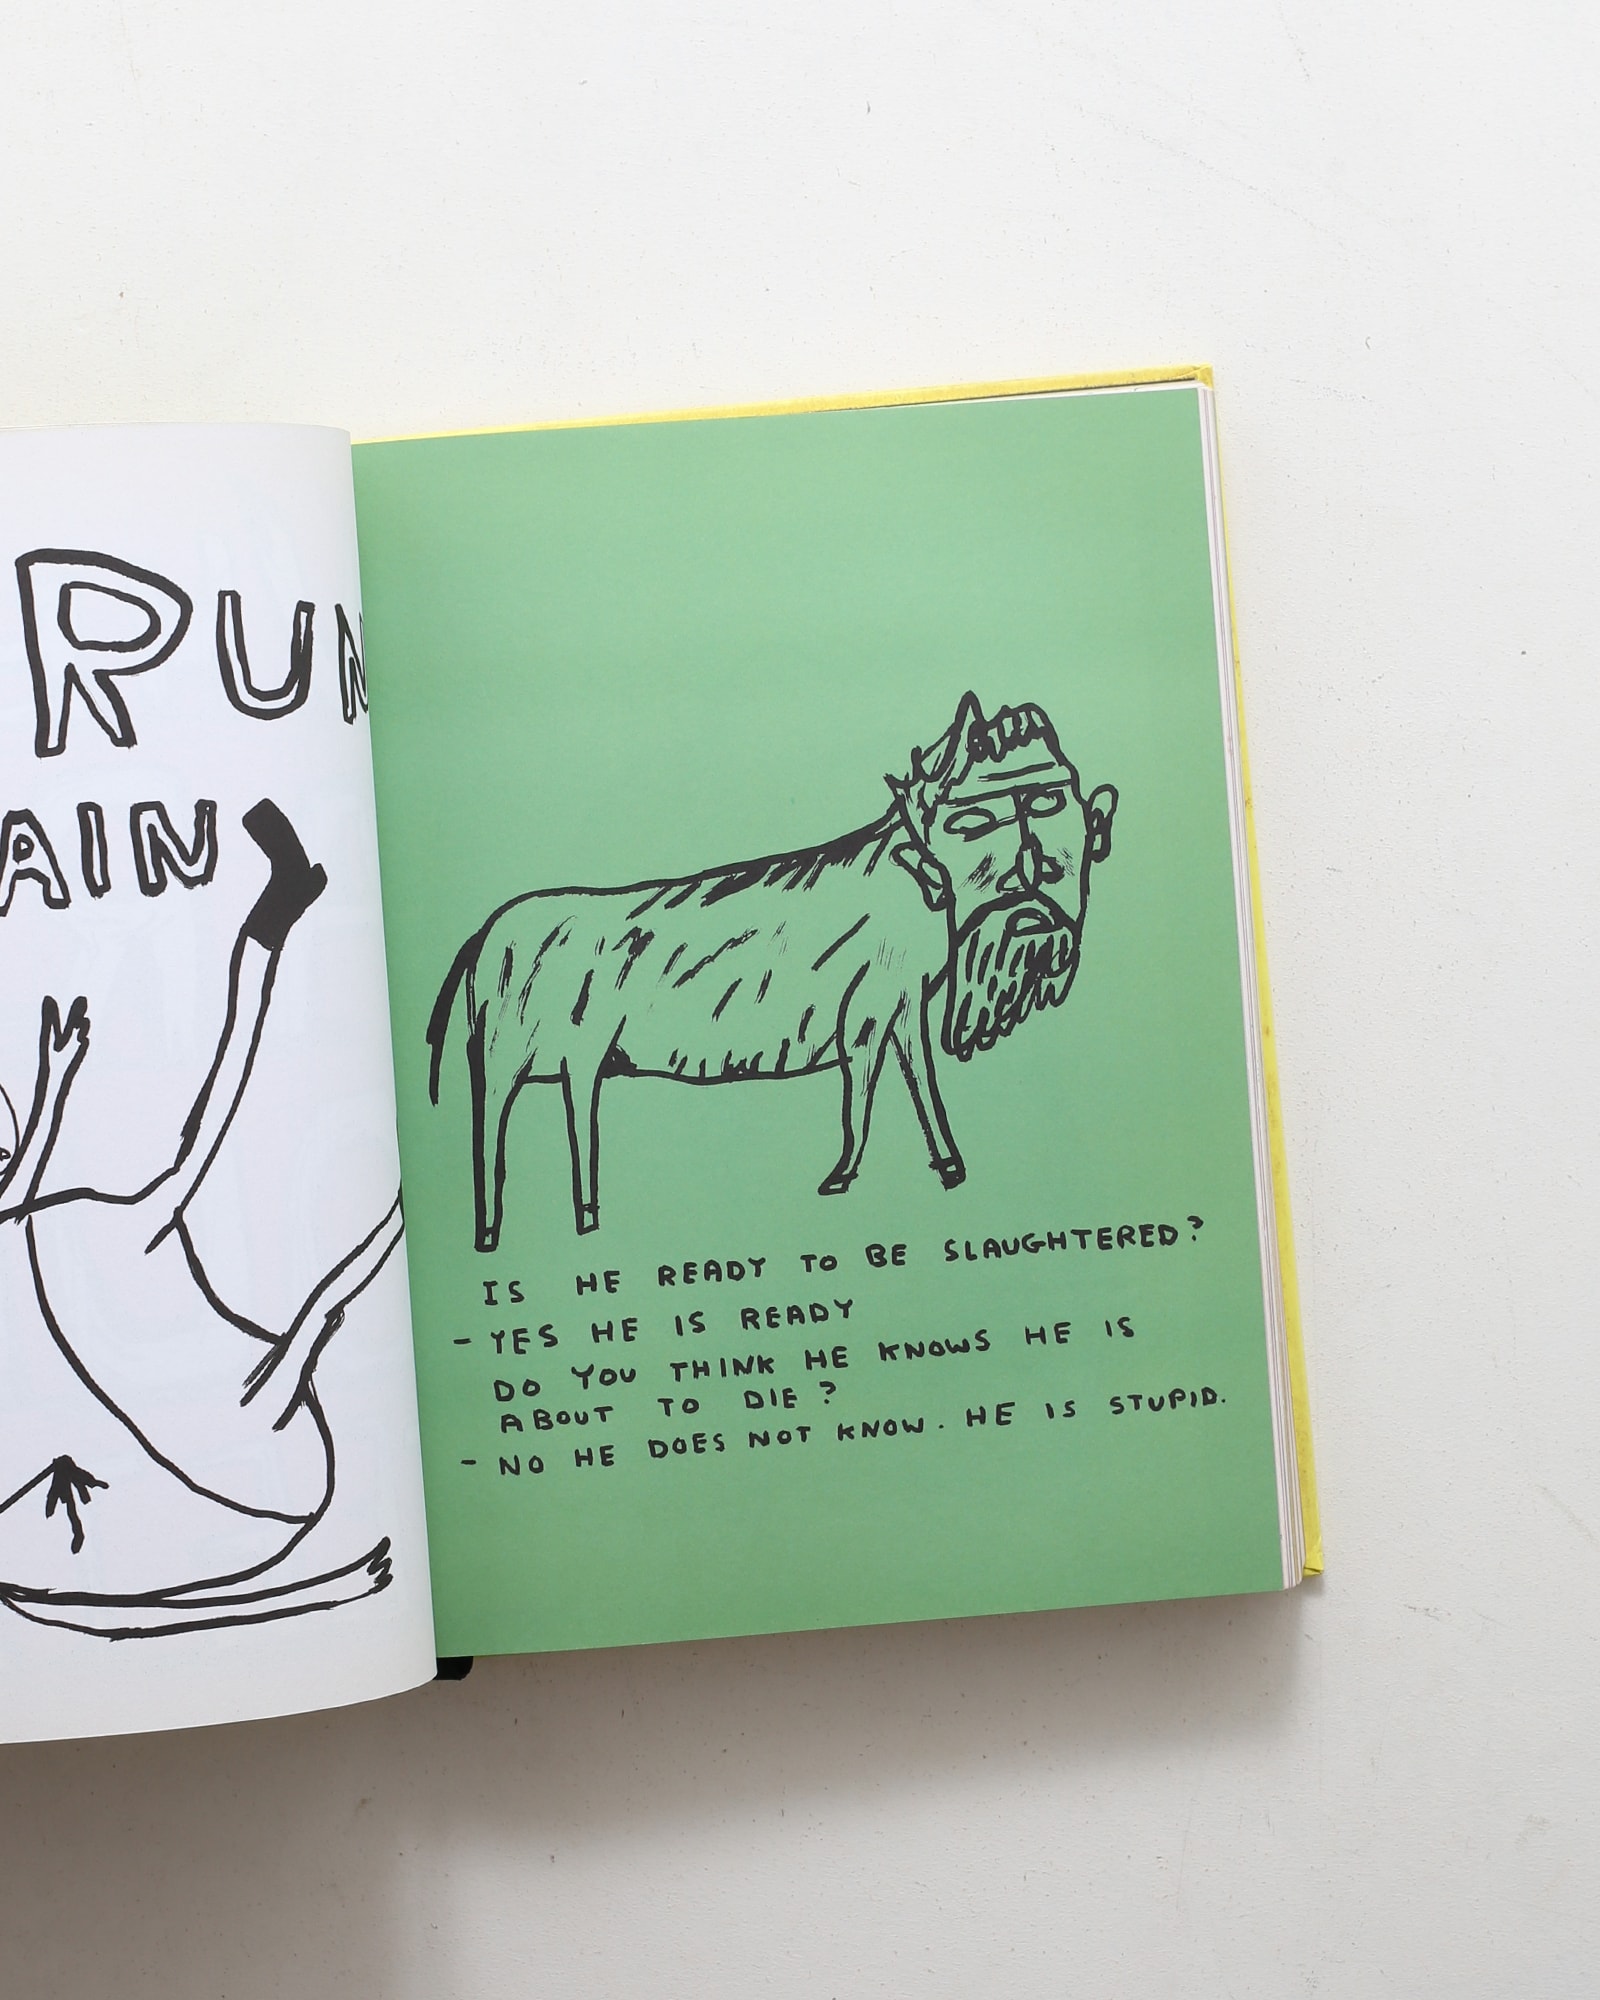 RUN
AIN
IS HE READY TO BE SLAUGHTERED?
- YES HE IS READY
DO YOU THINK HE KNOWS HE IS
ABOUT TO DIE?
- NO HE DOES NOT KNOW. HE IS STUPID.